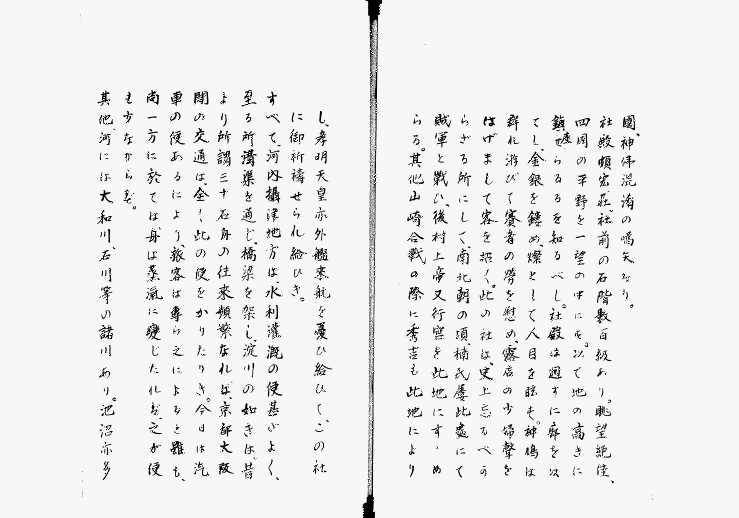 國、神佛混淆の嚆矢なり。
社殿頗宏莊、社前の石階數百級あり。眺望絶佳、
四周の平野を一望の中にをさ以て地の高きに
鎭座せらるるを知るべし。社殿は廻すに廊を以
てし、金銀を鏤め、燦として人目を眩す。神鳩は
群れ游びて賽者の勞を慰め、露店の少婦聲を
はげまして客を招く。此の社は、史上忘るべか
らざる所にして、南北朝の頃、楠氏屡此處にて
賊軍と戰ひ、後村上帝又行宮を此地にす、め
らる。其他山崎合戰の際に秀吉も此地により
し、孝明天皇亦外艦來航を憂ひ給ひてこの社
に御祈禱せられ給ひき。
すべて、河内攝津地方は、水利灌漑の便甚だよく、
至る所溝渠を通じ、橋梁を架し、淀川の如きは、昔
より所謂三十石舟の往來頻繁なれば、京都大阪
間の交通は、全く此の便をかりたりき。今日は汽
車の便あるにより、旅客は專ら之によると雖も、
尚一方に於ては、舟は蒸氣に變じたれど、之が便
も少なからず。
其他、河には大和川、石川等の諸川あり。池沼亦多